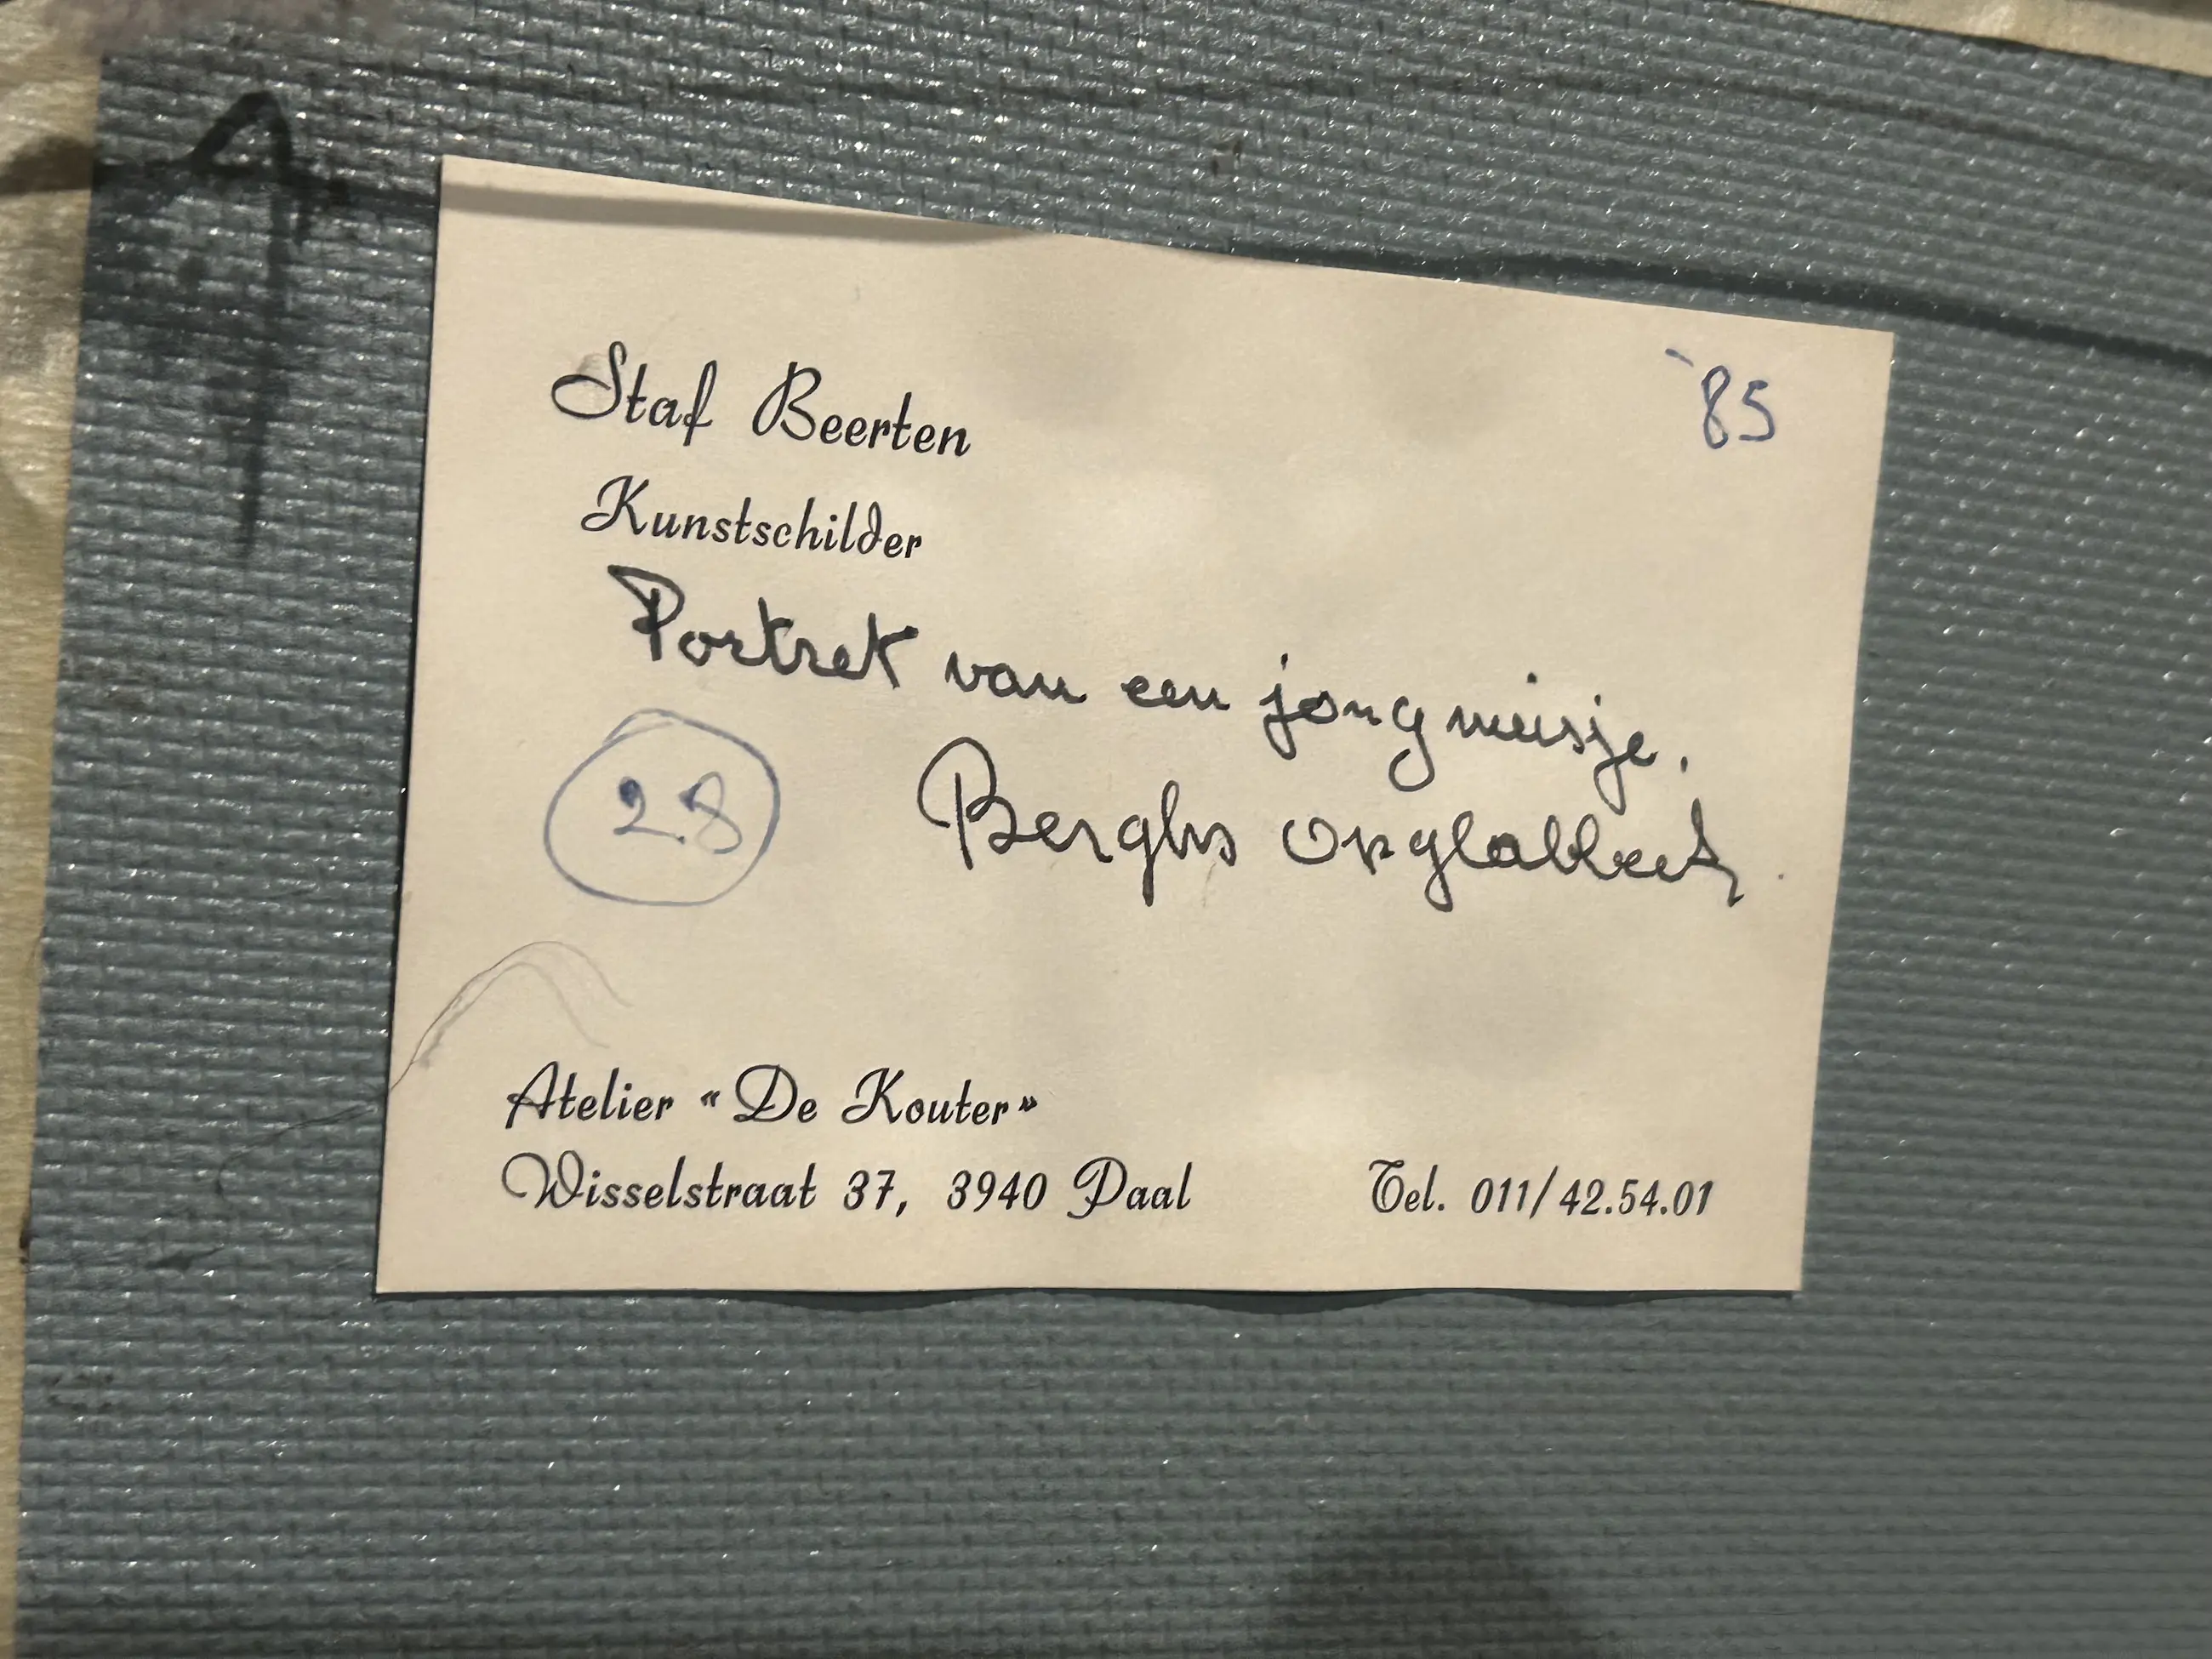 Staf Beerten
`85
Kunstschilder
Portret van een jong meisje.
28
Berghs opglabbeek.
Atelier «De Kouter»
Wisselstraat 37, 3940 Paal
Tel. 011/42.54.01